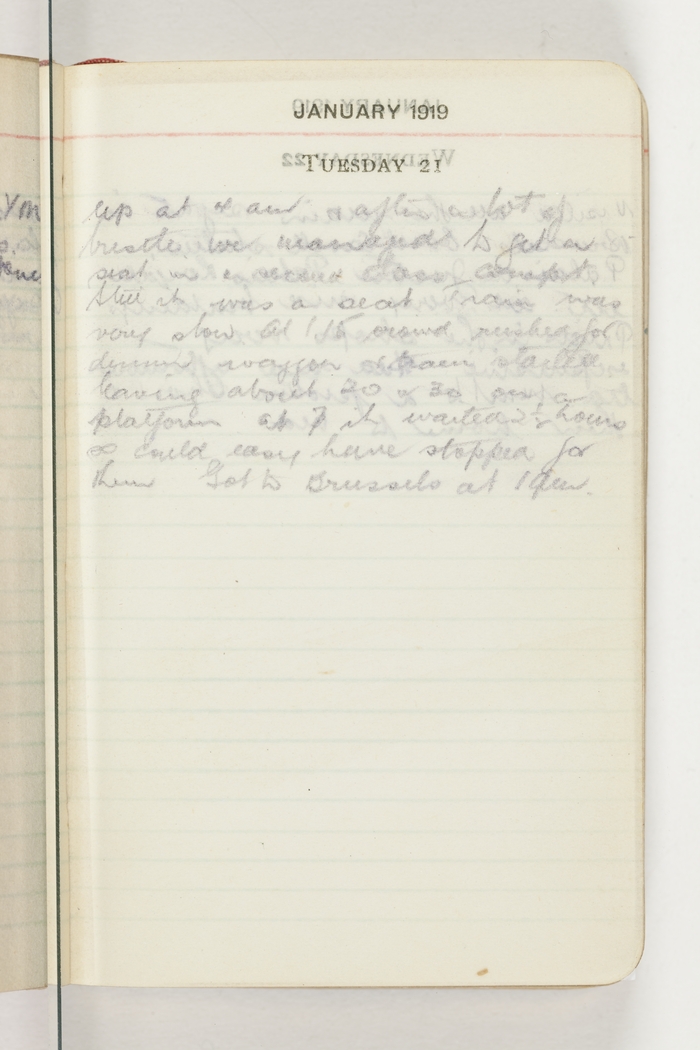 JANUARY 1919
TUESDAY 21
up at 4 am & after a lot of
bustle we managed to get a
seat in a second class compt.
Still it was a seat. Train was
very slow. At 1/15 crowd rushed for
dinner waggon & train started
leaving about 20 or 30 on
platform at 7 it waited 2½ hours
so could easy have stopped for
them Got to Brussels at 1 am.